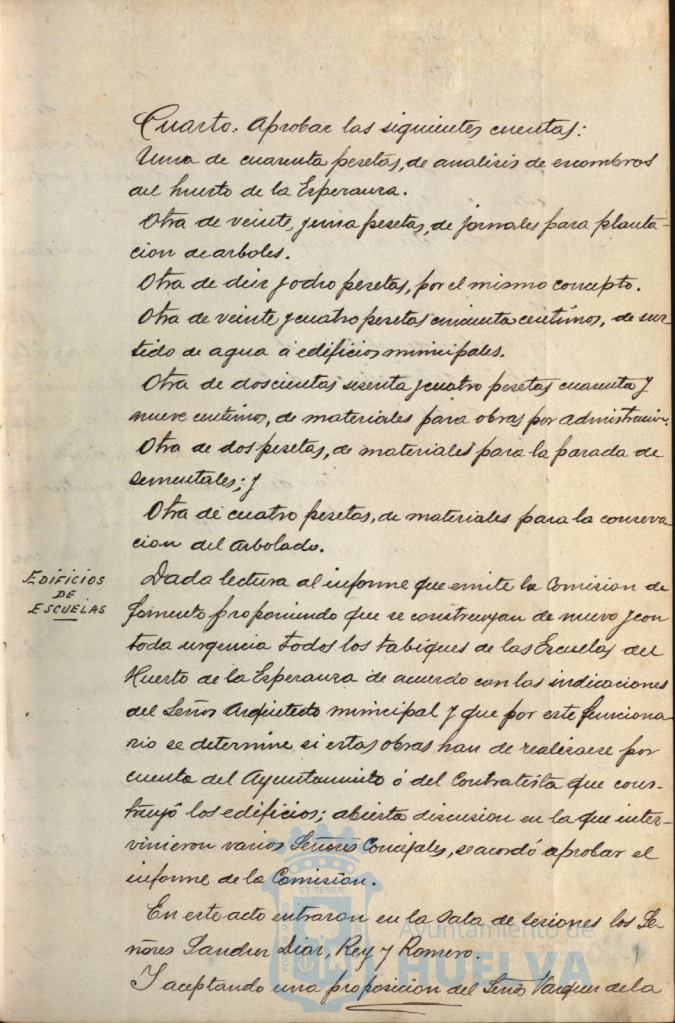 Cuarto. Aprobar las siguientes cuentas:
Una de cuarenta pesetas, de analisis de escombros
del huerto de la Esperanza.
Otra de veinte y una pesetas, de jornales para planta-
cion de arboles.
Otra de diez y ocho pesetas, por el mismo concepto.
Otra de veinte y cuatro pesetas cincuenta centimos, de sur-
tido de agua á edificios municipales.
Otra de doscientas sesenta y cuatro pesetas cuarenta y
nueve centimos, de materiales para obras por administracion.
Otra de dos pesetas, de materiales para la parada de
sementales; y
Otra de cuatro pesetas, de materiales para la conserva
cion del arbolado.
EDIFICIOS
DE
ESCUELAS
Dada lectura al informe que emite la Comision de
fomento proponiendo que se construyan de nuevo y con
toda urgencia todos los tabiques de las Escuelas del
Huerto de la Esperanza de acuerdo con las indicaciones
del Señor Arquitecto municipal y que por este funciona-
rio se determine si estas obras han de realizarse por
cuenta del Ayuntamiento ó del Contratista que cons-
truyó los edificios; abierta discusion en la que inter-
vinieron varios Señores Concejales, se acordó aprobar el
informe de la Comision.
En este acto entraron en la sala de sesiones los Se-
ñores Sanchez Diaz, Rey y Romero.
Y aceptando una proposicion del Señor Vazquez de la
Ayuntamiento de
HUELVA